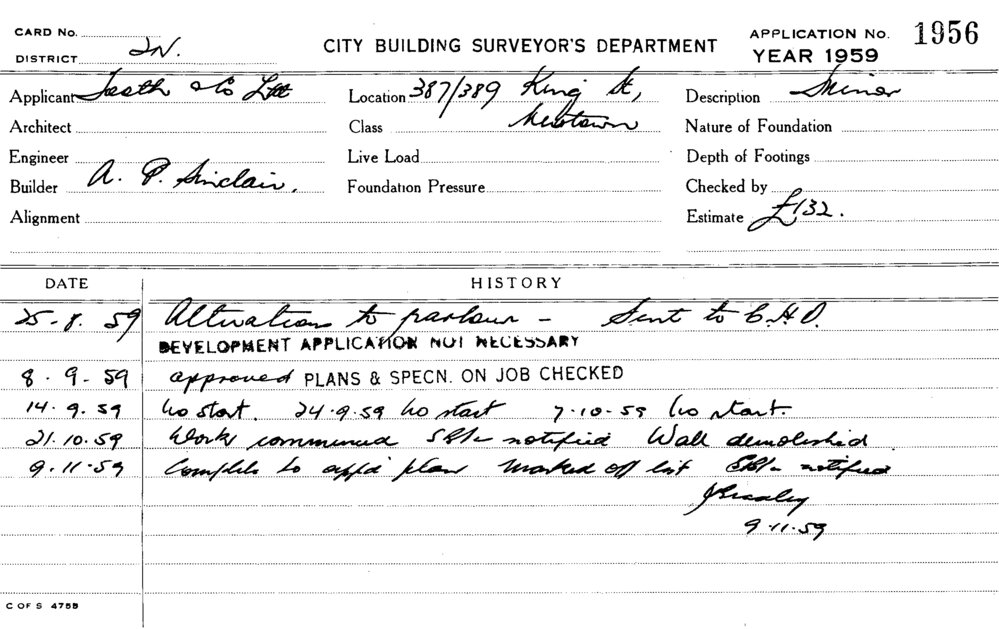 CARD No.
DISTRICT 2N.
CITY BUILDING SURVEYOR'S DEPARTMENT
APPLICATION No. 1956
YEAR 1959
Applicant & Co Ltd
Location 387/389 King St,
Description Minor
Architect
Class Newtown
Nature of Foundation
Engineer
Live Load
Depth of Footings
Builder A. P. Sinclair.
Foundation Pressure
Checked by
Alignment
Estimate £132.
DATE
HISTORY
25-8.59 Alterations to parlour - Sent to C.H.O.
DEVELOPMENT APPLICATION NOT NECESSARY
8.9-59 approved PLANS & SPECN. ON JOB CHECKED
14.9.59 No start. 24-9.59 No start 7-10-59 No start.
21.10.59 Work commenced notified Wall demolished
9.11.59 Complete to app'd plan Marked off list notified
9.11.59
C OF S 475B